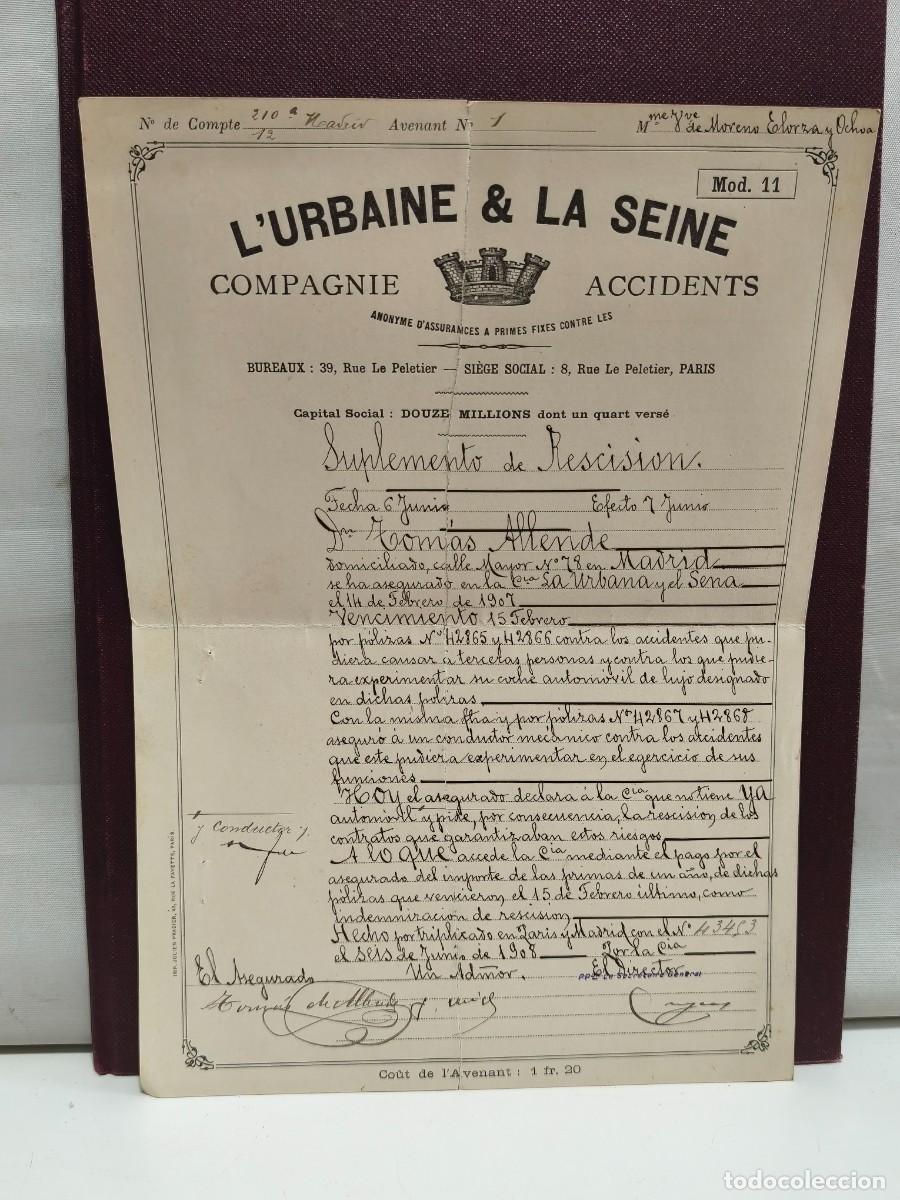 Nº de Compte 210ª/12 Madrid Avenant Nº 1 Mme Vve de Moreno Elorza y Ochoa
Mod. 11
L'URBAINE & LA SEINE
COMPAGNIE ACCIDENTS
ANONYME D'ASSURANCES A PRIMES FIXES CONTRE LES
BUREAUX : 39, Rue Le Peletier — SIÈGE SOCIAL : 8, Rue Le Peletier, PARIS
Capital Social : DOUZE MILLIONS dont un quart versé
Suplemento de Rescision.
Fecha 6 Junio Efecto 7 Junio
Dn Tomás Allende
domiciliado, calle Mayor Nº 78 en Madrid
se ha asegurado en la Cia La Urbana y el Sena
el 14 de Febrero de 1907
Vencimiento 15 Febrero
por pólizas Nº 42865 y 42866 contra los accidentes que pu-
diera causar á terceras personas y contra los que pudie-
ra experimentar su coche automóvil de lujo designado
en dichas polizas.
Con la misma fha y por pólizas Nº 42867 y 42868
aseguró á un conductor mecánico contra los accidentes
que este pudiera experimentar en el egercicio de sus
funciones
HOY el asegurado declara á la Cia que no tiene YA
automóvil y pide, por consecuencia, la rescision de los
y conductor
contratos que garantizaban estos riesgos
A LO QUE accede la Cia mediante el pago por el
asegurado del importe de las primas de un año, de dichas
pólizas que vencieron el 15 de Febrero último, como
indemnizacion de rescision
Hecho por triplicado en Paris y Madrid con el Nº 43453
el seis de Junio de 1908 Por la Cia
El Asegurado Un Admor. El Director
PPon Le Secrétaire Général
Tomás de Allende
Coût de l'Avenant : 1 fr. 20
IMP. JULIEN FRADIER, RUE LA FAYETTE, PARIS
todocoleccion